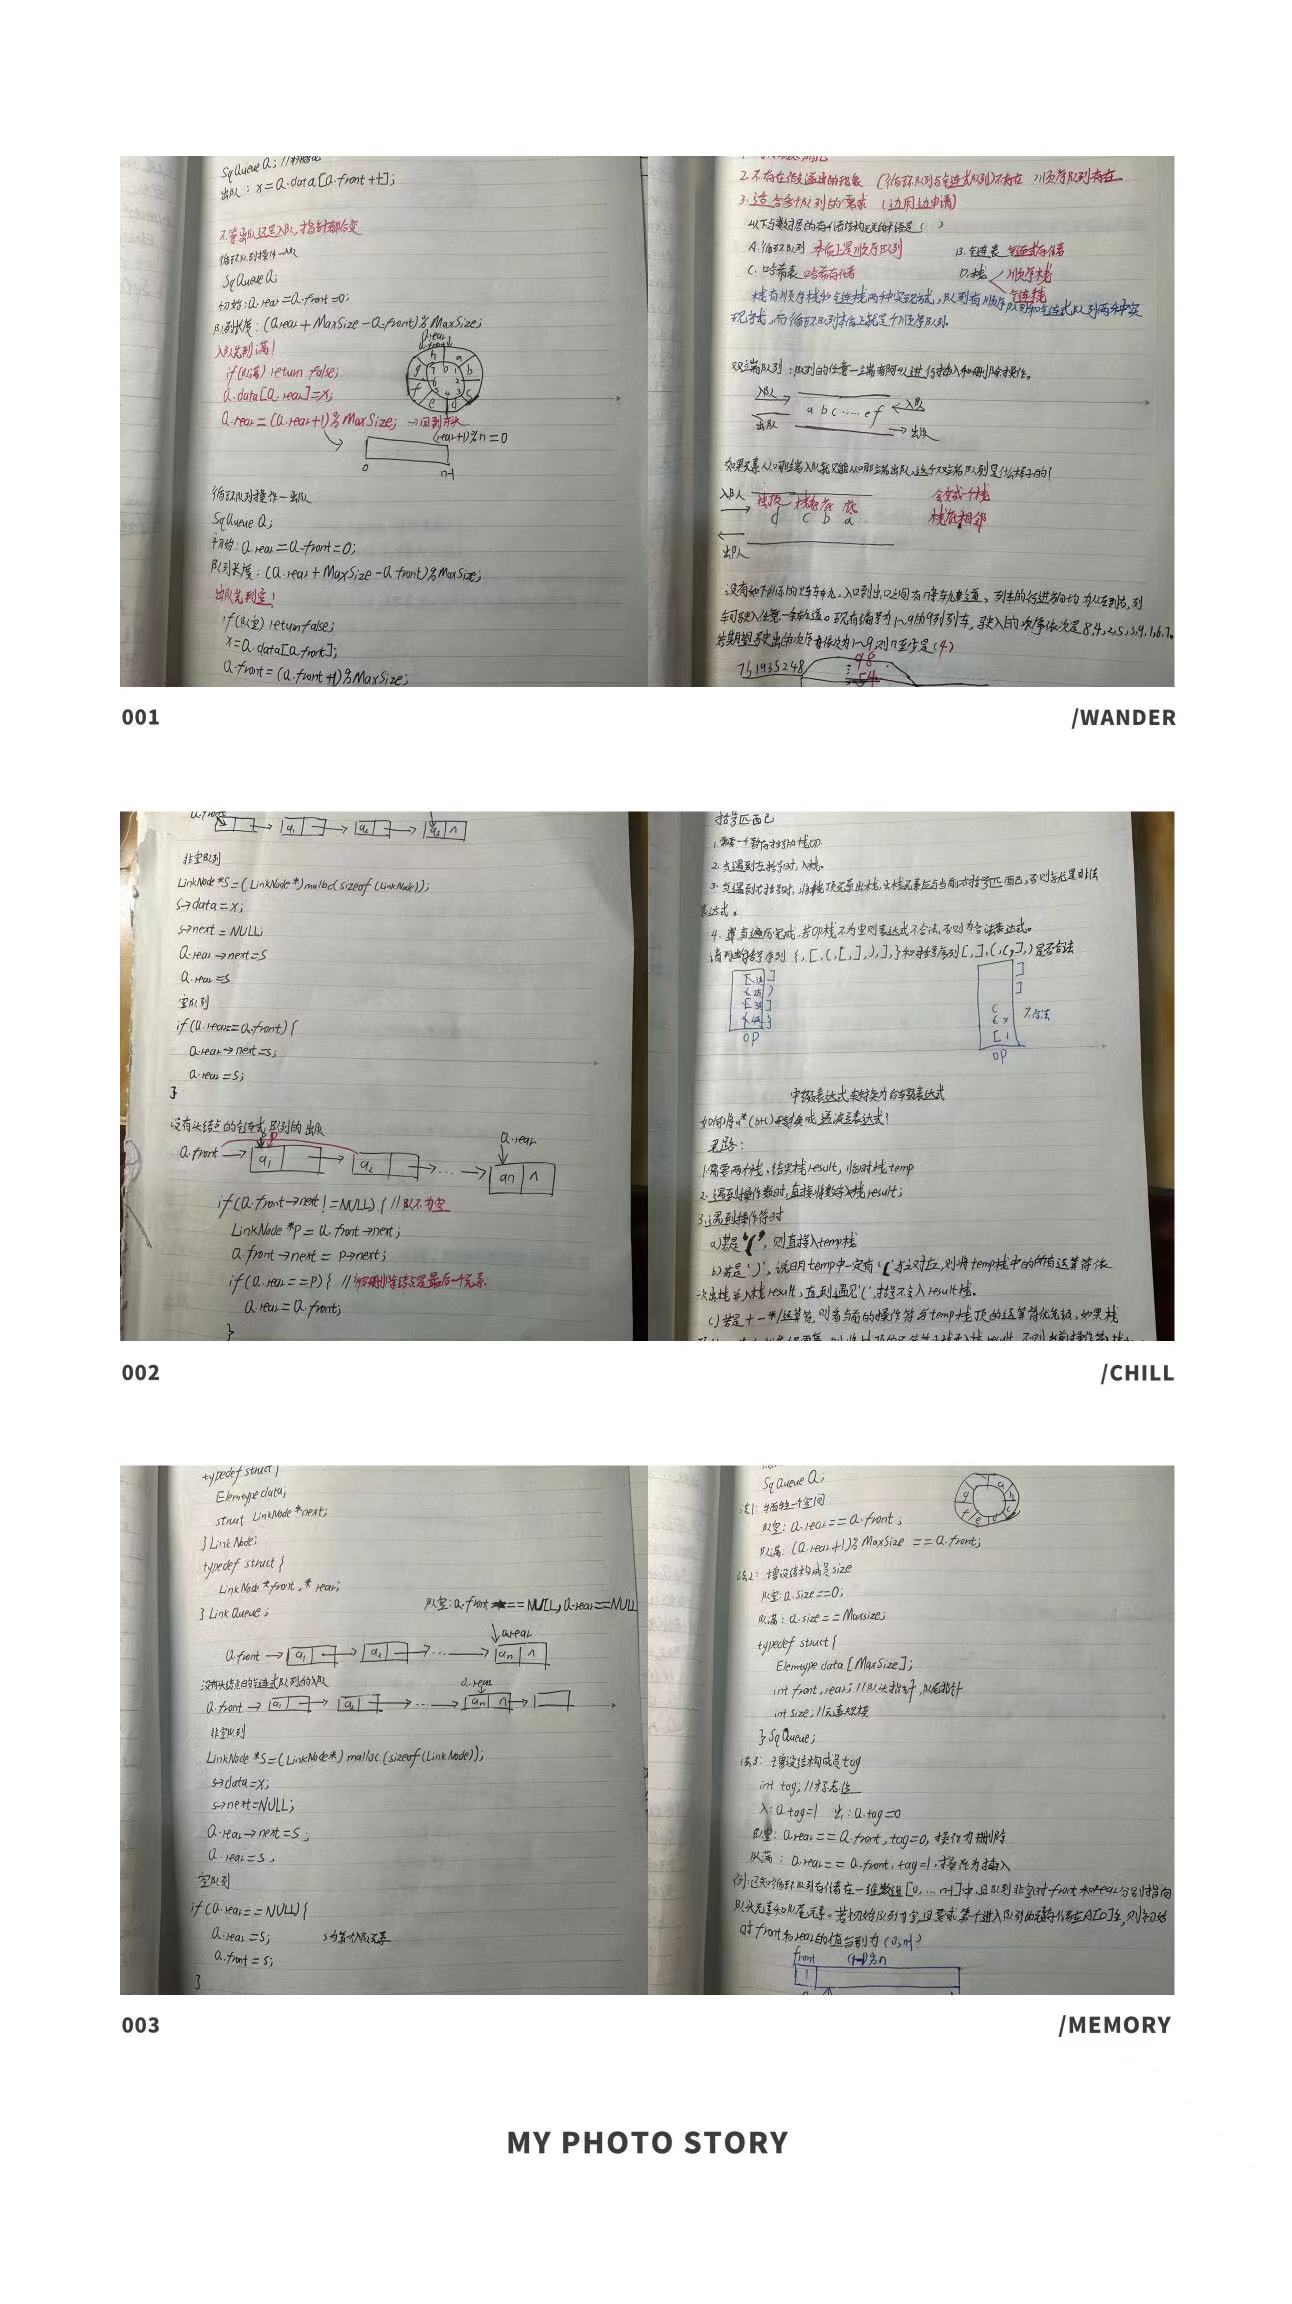 SqQueue Q; //初始化
出队：x=Q.data[Q.front++];
不管出队还是入队，指针都会变
循环队列操作-入队
SqQueue Q;
初始：Q.rear=Q.front=0;
队列长度：(Q.rear+MaxSize-Q.front)%MaxSize;
入队先判满！
if(队满) return false;
Q.data[Q.rear]=x;
Q.rear=(Q.rear+1)%MaxSize; →回到开头
(rear+1)%n=0
0 n-1
循环队列操作-出队
SqQueue Q;
初始：Q.rear=Q.front=0;
队列长度：(Q.rear+MaxSize-Q.front)%MaxSize;
出队先判空！
if(队空) return false;
x=Q.data[Q.front];
Q.front=(Q.front+1)%MaxSize;
2.不存在假溢出的现象 (循环队列与链式队列)不存在 顺序队列存在
3.适合多个队列的需求 (边用边申请)
以下与数据的存储结构无关的术语是( )
A.循环队列 本质上是顺序队列 B.链表 链式存储
C.哈希表 哈希存储 D.栈 顺序栈
链栈
栈有顺序栈和链栈两种实现方式，队列有顺序队列和链式队列两种实
现方式，而循环队列本质上就是个顺序队列。
双端队列：队列的任意一端都可以进行插入和删除操作。
入队 a b c ..... e f 入队
出队 出队
如果元素从哪端入队就只能从哪端出队，这个双端队列是什么样子的？
入队 栈顶 栈存 底 会变成一个栈
d c b a 栈底相邻
出队
设有如下所示的火车车轨，入口到出口之间有n条车轨道，列车的行进方向均为从左到右，列
车可驶入任意一条轨道。现有编号为1~9的9列列车，驶入的次序依次是8,4,2,5,3,9,1,6,7。
若期望驶出的次序依次为1~9，则n至少是(4)
761935248 98
54
001
/WANDER
Q.front
a₁ a₂ a₃ ∧
非空队列
LinkNode *S=(LinkNode *)malloc(sizeof(LinkNode));
S→data=x;
S→next=NULL;
Q.rear→next=S
Q.rear=S
空队列
if(Q.rear==Q.front){
Q.rear→next=S;
Q.rear=S;
}
没有头结点的链式队列的出队
Q.front → a₁ → a₂ → ... → an ∧
P
Q.rear
if(Q.front→next!=NULL){ //队不为空
LinkNode *P=Q.front→next;
Q.front→next=P→next;
if(Q.rear==P){ //被删除结点是最后一个元素
Q.rear=Q.front;
}
括号匹配
1.需要一个暂存括号的栈OP.
2.当遇到左括号时，入栈。
3.当遇到右括号时，将栈顶元素出栈，出栈元素应与当前右括号匹配，否则就是非法
表达式。
4.当遍历完成，若OP栈不为空则表达式不合法，否则为合法表达式。
请判断括号序列{,[,(,[,],),],}和括号序列[,],(,(,],)是否合法
OP
不合法
OP
中缀表达式转换为后缀表达式
如何将a*(b+c)转换成逆波兰表达式？
思路：
1.需要两个栈，结果栈result，临时栈temp
2.遇到操作数时，直接将数字入栈result;
3.遇到操作符时
a)若是'('，则直接入temp栈
b)若是')'，说明temp中一定有'('与之对应，则将temp栈中的所有运算符依
次出栈并入栈result，直到遇见'('，括号不入result栈。
c)若是+-*/运算符，则看当前的操作符与temp栈顶的运算符优先级，如果栈
002
/CHILL
typedef struct{
Elemtype data;
struct LinkNode *next;
}LinkNode;
typedef struct{
LinkNode *front,*rear;
}LinkQueue;
队空：Q.front==NULL,Q.rear==NULL
Q.rear
Q.front → a₁ → a₂ → ... → an ∧
没有头结点的链式队列的入队
Q.rear
Q.front → a₁ → a₂ → ..... → an ∧
非空队列
LinkNode *S=(LinkNode*)malloc(sizeof(LinkNode));
S→data=x;
S→next=NULL;
Q.rear→next=S;
Q.rear=S;
空队列
if(Q.rear==NULL){
Q.rear=S; S为第一个入队元素
Q.front=S;
}
SqQueue Q;
法1：牺牲一个空间
队空：Q.rear==Q.front;
队满：(Q.rear+1)%MaxSize==Q.front;
法2：增设结构成员size
队空：Q.size==0;
队满：Q.size==Maxsize;
typedef struct{
Elemtype data[MaxSize];
int front,rear; //队头指针,队尾指针
int size; //元素规模
}SqQueue;
法3：增设结构成员tag
int tag; //标志位
入：Q.tag=1 出：Q.tag=0
队空：Q.rear==Q.front,tag=0,操作为删除
队满：Q.rear==Q.front,tag=1,操作为插入
例：已知循环队列存储在一维数组[0,...n-1]中，且队列非空时front和rear分别指向
队头元素和队尾元素。若初始队列为空，且要求第一个进入队列的元素存储在A[0]处，则初始
时front和rear的值分别为(0,n-1)
front
003
/MEMORY
MY PHOTO STORY